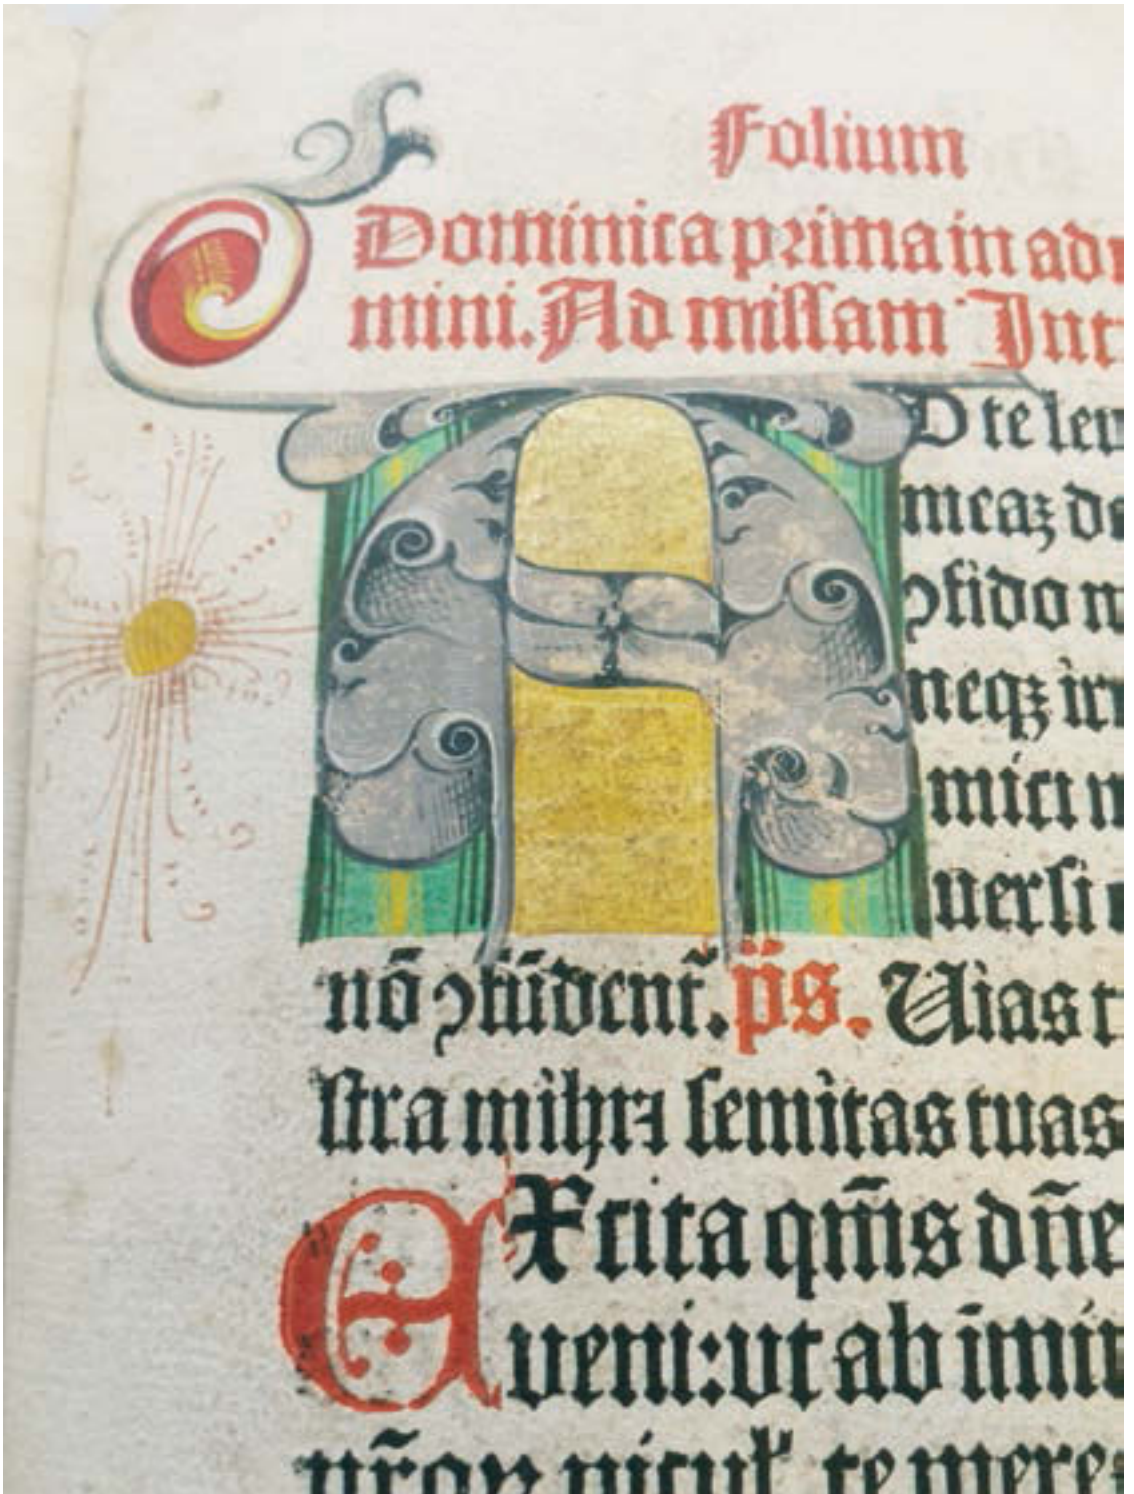 Folium
Dominica prima in adu
mini. Ad missam Int
AD te leu
meaꝫ de
ꝯfido n
neqꝫ irr
mici m
uersi
nō ꝯfūdent᷑. p̄s. Uias t
stra mihi ⁊ semitas tuas
EXcita qm̄s dn̄e
ueni: ut ab īmin
nr̄oꝝ ꝑicul᷑ te mere